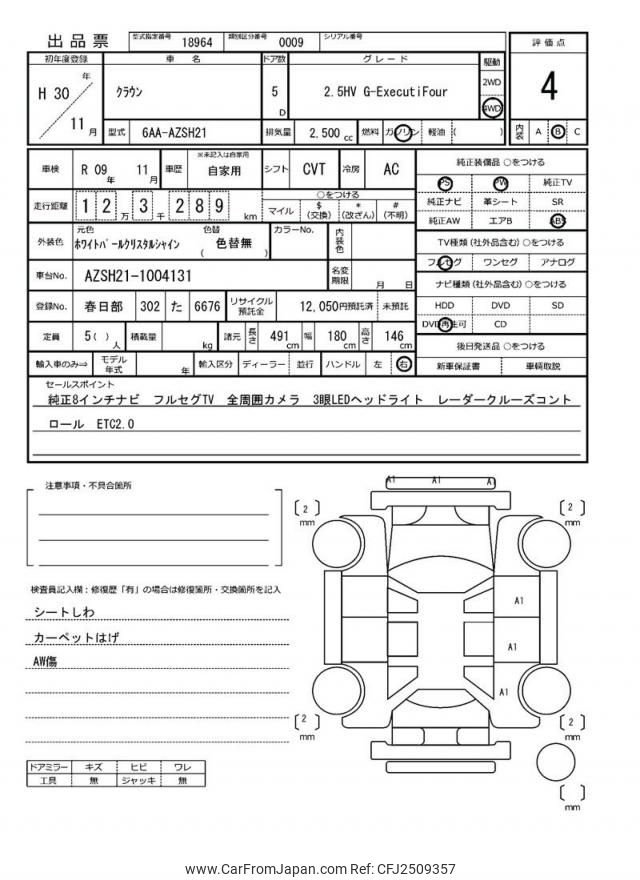 出品票 型式指定番号 18964 類別区分番号 0009 シリアル番号
評価点
4
初年度登録 車名 ドア数 グレード 駆動
H 30 年 11 月 クラウン 5 D 2.5HV G-ExecutiFour 2WD 4WD
型式 6AA-AZSH21 排気量 2,500 cc 燃料 ガソリン 軽油 ( ) 内装 A B C
車検 R 09 年 11 月 車歴 ※未記入は自家用 自家用 シフト CVT 冷房 AC
走行距離 1 2 万 3 千 2 8 9 km
○をつける
マイル $ (交換) * (改ざん) # (不明)
外装色 元色 ホワイトパールクリスタルシャイン 色替 ( 色替無 ) カラーNo. 内装色
車台No. AZSH21-1004131 名変期限 月 日
登録No. 春日部 302 た 6676 リサイクル預託金 12,050円預託済 未預託
定員 5( ) 人 積載量 kg 諸元 長さ 491 cm 幅 180 cm 高さ 146 cm
輸入車のみ⇒ モデル年式 年 輸入区分 ディーラー 並行 ハンドル 左 右
純正装備品 ○をつける
PS PW 純正TV
純正ナビ 革シート SR
純正AW エアB ABS
TV種類 (社外品含む) ○をつける
フルセグ ワンセグ アナログ
ナビ種類 (社外品含む) ○をつける
HDD DVD SD
DVD再生可 CD
後日発送品 ○をつける
新車保証書 車輌取説
セールスポイント
純正8インチナビ フルセグTV 全周囲カメラ 3眼LEDヘッドライト レーダークルーズコント
ロール ETC2.0
注意事項・不具合箇所
検査員記入欄：修復歴「有」の場合は修復箇所・交換箇所を記入
シートしわ
カーペットはげ
AW傷
ドアミラー キズ ヒビ ワレ
工具 無 ジャッキ 無
A1 A1 A1
[ 2 ] mm [ 2 ] mm
A1
A1
A1
[ 2 ] mm [ 2 ] mm
[ ] mm
www.CarFromJapan.com Ref: CFJ2509357